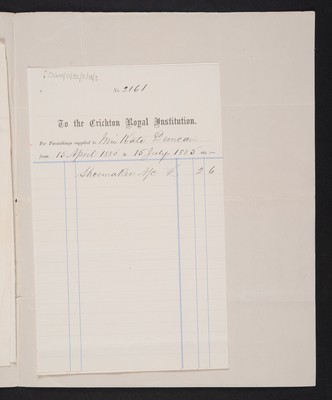 No. 2161
To the Crichton Royal Institution.
For Furnishings supplied to Miss Kate Duncan
from 15 April 1885 to 15 July 1885 viz:—
Shoemaker A/c £ 2 6